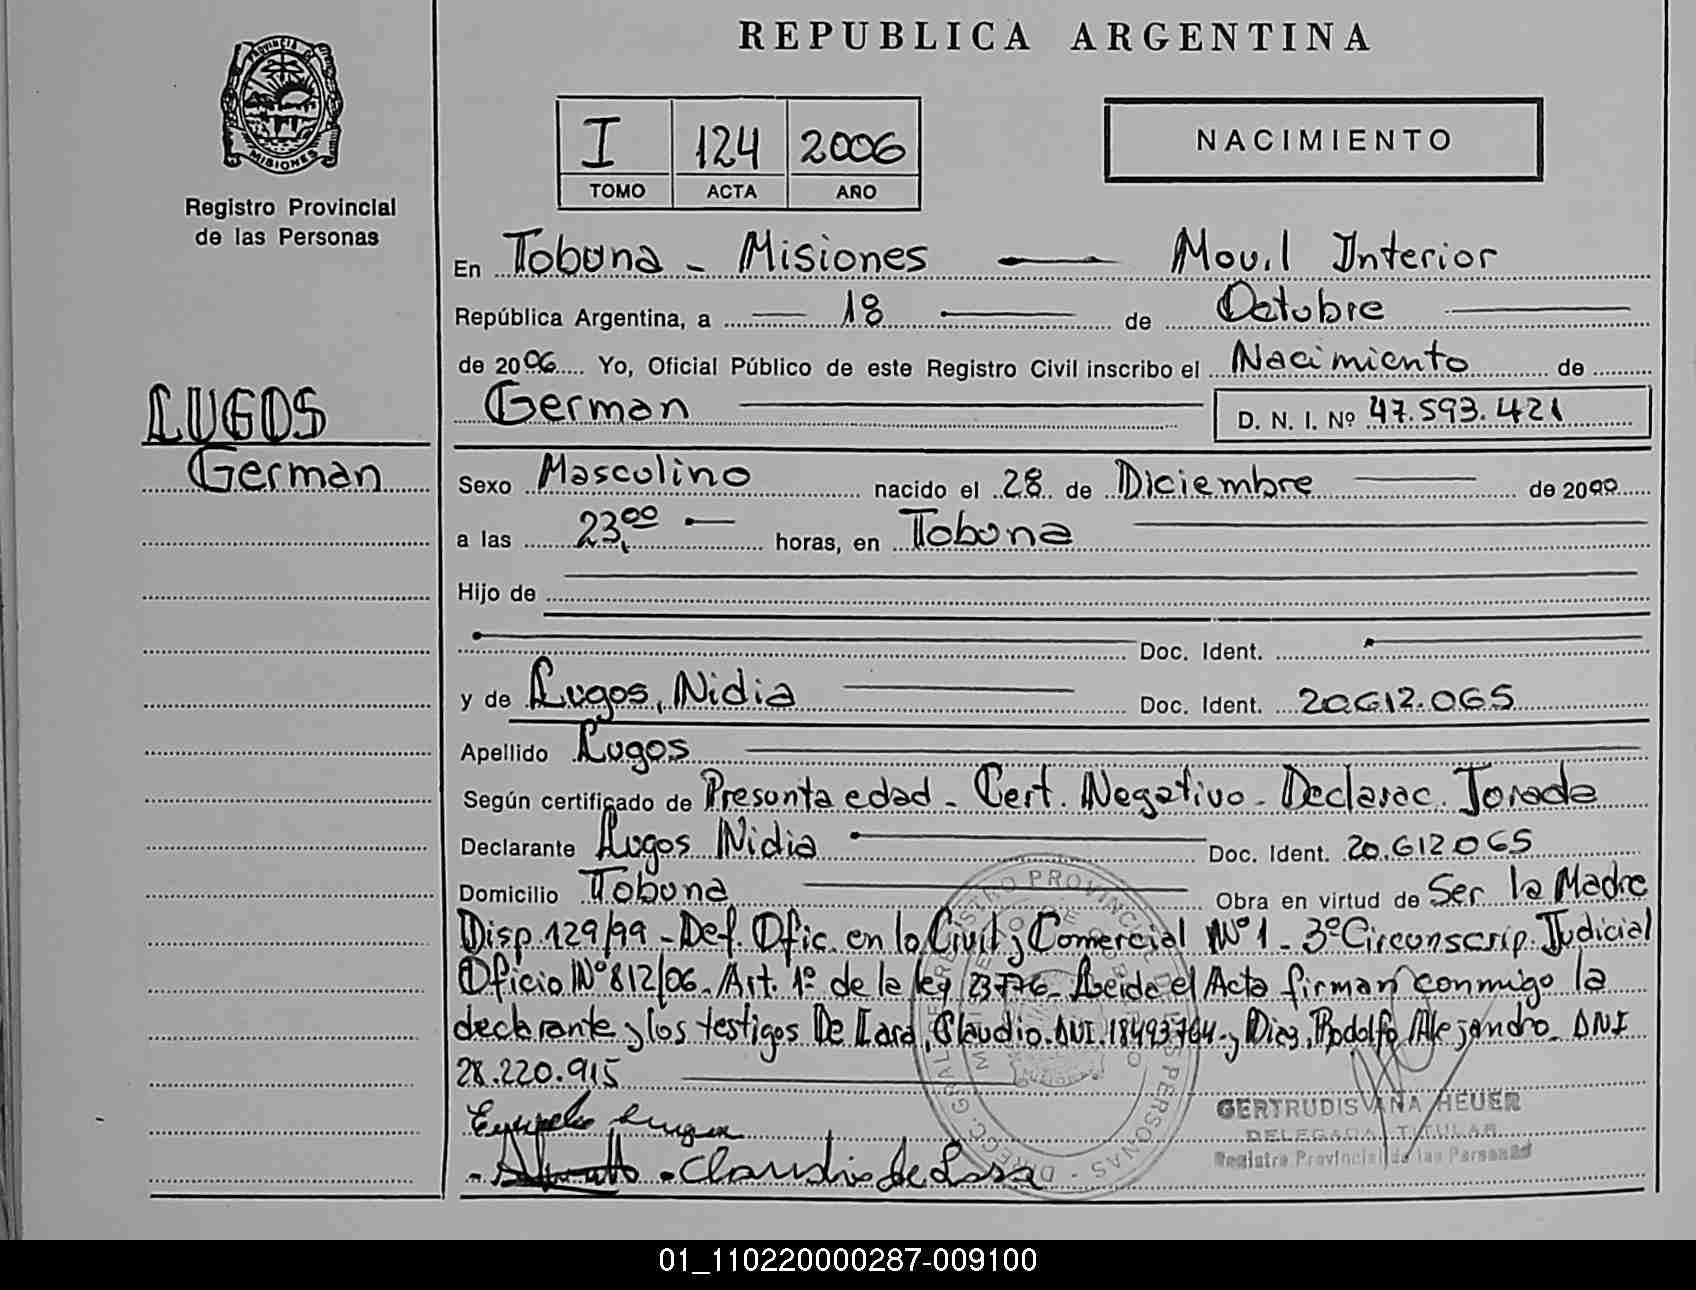 REPUBLICA ARGENTINA
PROVINCIA DE
MISIONES
Registro Provincial
de las Personas
I 124 2006
TOMO ACTA AÑO
NACIMIENTO
En Tobuna - Misiones — Movil Interior
República Argentina, a 18 de Octubre
de 2006 Yo, Oficial Público de este Registro Civil inscribo el Nacimiento de
German D. N. I. Nº 47.593.421
LUGOS
German
Sexo Masculino nacido el 28 de Diciembre de 20
a las 23,00 horas, en Tobuna
Hijo de
Doc. Ident.
y de Lugos, Nidia Doc. Ident. 20.612.065
Apellido Lugos
Según certificado de Presunta edad - Cert. Negativo - Declarac. Jurada
Declarante Lugos Nidia Doc. Ident. 20.612.065
Domicilio Tobuna Obra en virtud de Ser la Madre
Disp. 129/99 - Def. Ofic. en lo Civil y Comercial Nº 1 - 3º Circunscrip. Judicial
Oficio Nº 812/06. Art. 1º de la ley 23776. Leida el Acta firman conmigo la
declarante y los testigos De Lara, Claudio. DNI. 18493764 y Diaz, Rodolfo Alejandro. DNI
28.220.915
GERTRUDIS ANA HEUER
DELEGADA TITULAR
Registro Provincial de las Personas
- Claudio de Lara
01_110220000287-009100